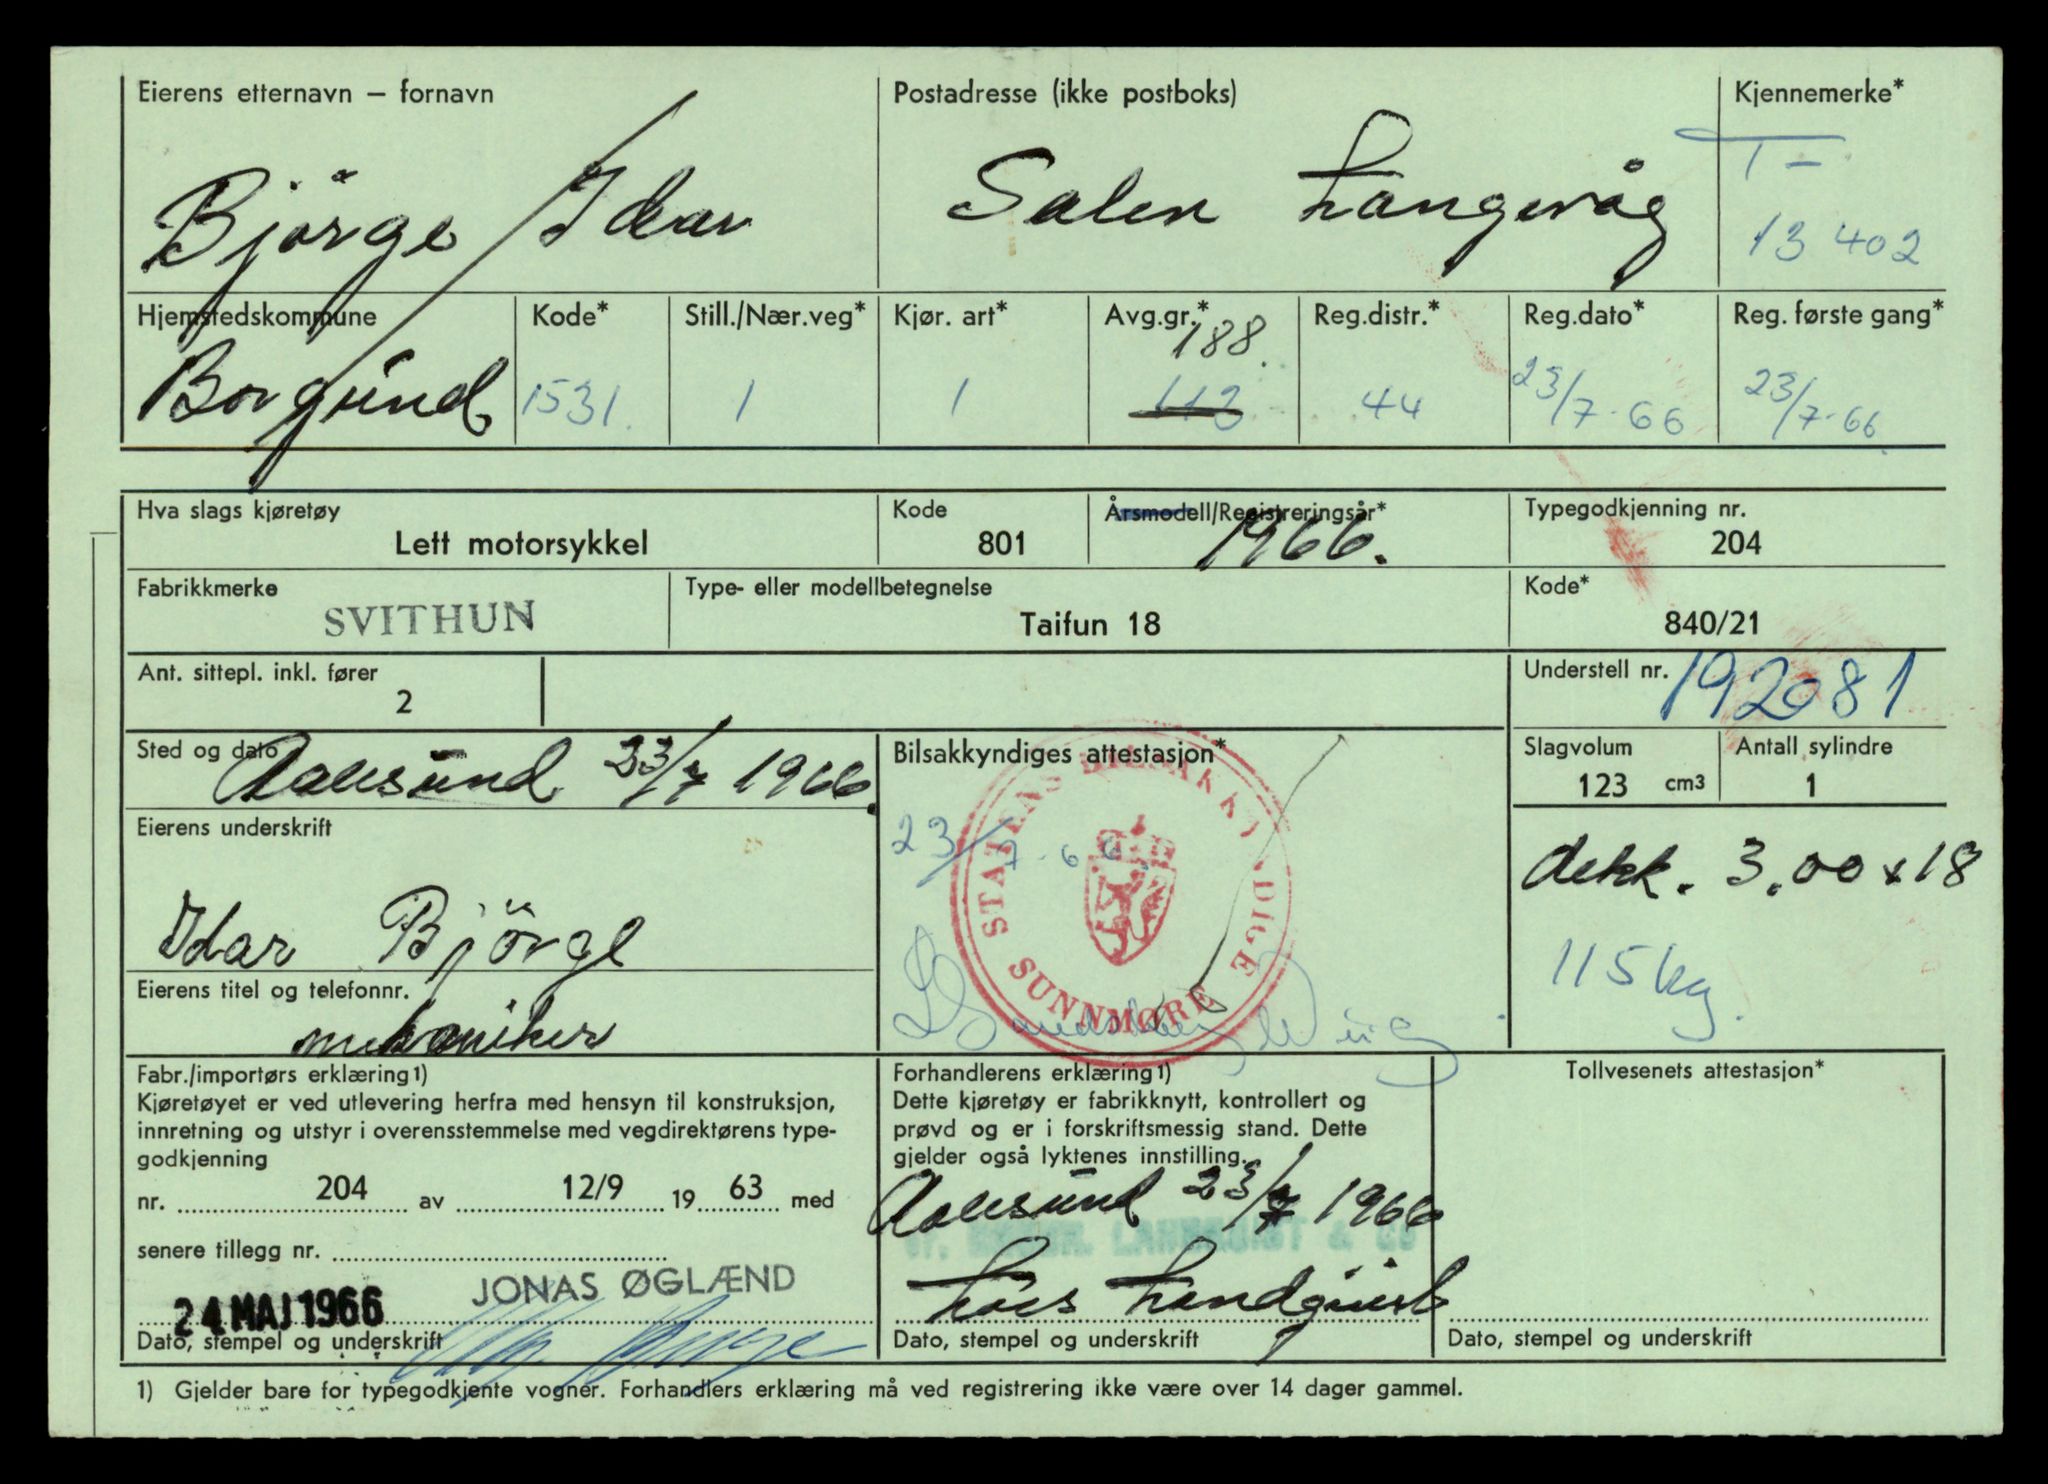 Eierens etternavn – fornavn
Bjørge / Idar
Postadresse (ikke postboks)
Salen Langevåg
Kjennemerke*
T-
13 402
Hjemstedskommune
Borgund
Kode*
1531.
Still./Nær.veg*
1
Kjør. art*
1
Avg.gr.*
188.
113
Reg.distr.*
44
Reg.dato*
23/7-66
Reg. første gang*
23/7-66.
Hva slags kjøretøy
Lett motorsykkel
Kode
801
Årsmodell/Registreringsår*
1966.
Typegodkjenning nr.
204
Fabrikkmerke
SVITHUN
Type- eller modellbetegnelse
Taifun 18
Kode*
840/21
Ant. sittepl. inkl. fører
2
Understell nr.
192081
Slagvolum
123 cm3
Antall sylindre
1
Sted og dato
Aalesund 23/7 1966.
Bilsakkyndiges attestasjon*
23/7-66
STATENS BILSAKKYNDIGE
SUNNMØRE
dekk. 3.00 x 18
115 kg.
Eierens underskrift
Idar Björge
Eierens titel og telefonnr.
mekaniker
Fabr./importørs erklæring1)
Kjøretøyet er ved utlevering herfra med hensyn til konstruksjon,
innretning og utstyr i overensstemmelse med vegdirektørens type-
godkjenning
nr. 204 av 12/9 19 63 med
senere tillegg nr.
JONAS ØGLÆND
24 MAJ 1966
Dato, stempel og underskrift
Forhandlerens erklæring1)
Dette kjøretøy er fabrikknytt, kontrollert og
prøvd og er i forskriftsmessig stand. Dette
gjelder også lyktenes innstilling.
Aalesund 23/7 1966
LANDQUIST & CO
Landquist
Dato, stempel og underskrift
Tollvesenets attestasjon*
Dato, stempel og underskrift
1) Gjelder bare for typegodkjente vogner. Forhandlers erklæring må ved registrering ikke være over 14 dager gammel.